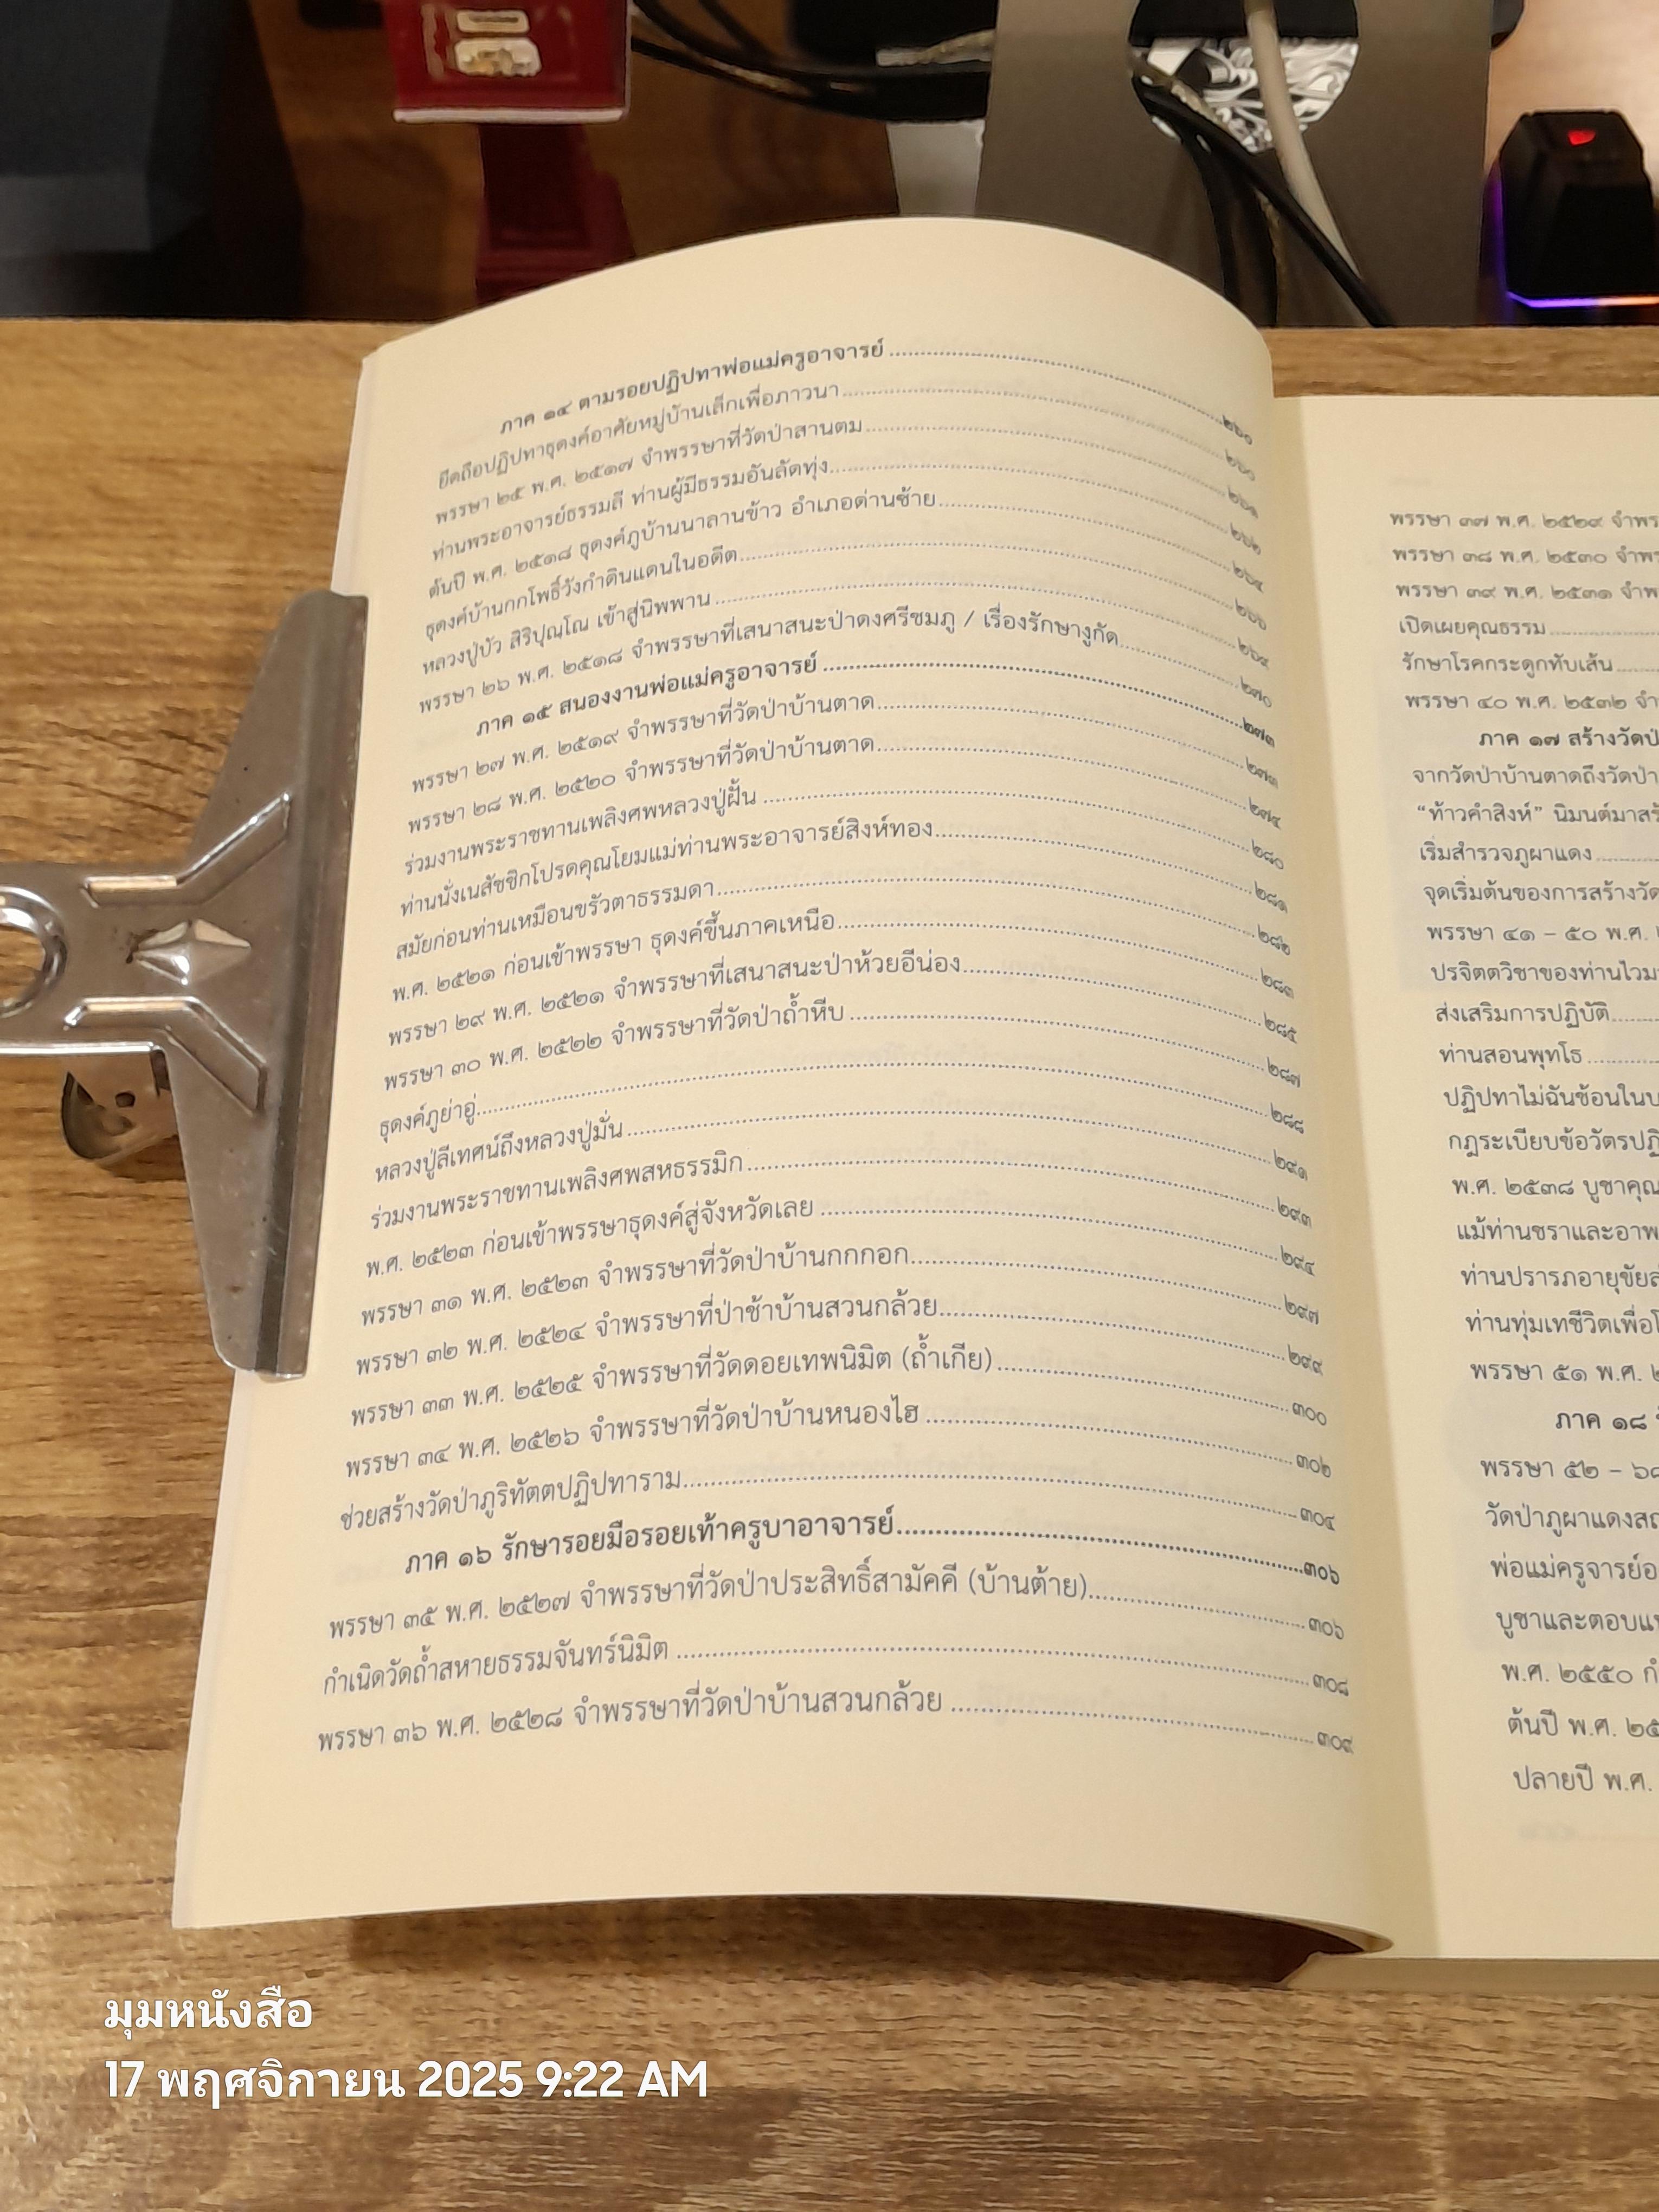 ภาค ๑๔ ตามรอยปฏิปทาพ่อแม่ครูอาจารย์ ๒๖๐
ยึดถือปฏิปทาธุดงค์อาศัยหมู่บ้านเล็กเพื่อภาวนา ๒๖๐
พรรษา ๒๕ พ.ศ. ๒๕๑๗ จำพรรษาที่วัดป่าสานตม ๒๖๑
ท่านพระอาจารย์ธรรมลี ท่านผู้มีธรรมอันลัดทุ่ง ๒๖๒
ต้นปี พ.ศ. ๒๕๑๘ ธุดงค์ภูบ้านนาลานข้าว อำเภอด่านซ้าย ๒๖๔
ธุดงค์บ้านกกโพธิ์วังกำดินแดนในอดีต ๒๖๖
หลวงปู่บัว สิริปุณฺโณ เข้าสู่นิพพาน ๒๖๙
พรรษา ๒๖ พ.ศ. ๒๕๑๘ จำพรรษาที่เสนาสนะป่าดงศรีชมภู / เรื่องรักษางูกัด ๒๗๐
ภาค ๑๕ สนองงานพ่อแม่ครูอาจารย์ ๒๗๓
พรรษา ๒๗ พ.ศ. ๒๕๑๙ จำพรรษาที่วัดป่าบ้านตาด ๒๗๓
พรรษา ๒๘ พ.ศ. ๒๕๒๐ จำพรรษาที่วัดป่าบ้านตาด ๒๗๔
ร่วมงานพระราชทานเพลิงศพหลวงปู่ฝั้น ๒๘๐
ท่านนั่งเนสัชชิกโปรดคุณโยมแม่ท่านพระอาจารย์สิงห์ทอง ๒๘๑
สมัยก่อนท่านเหมือนขรัวตาธรรมดา ๒๘๒
พ.ศ. ๒๕๒๑ ก่อนเข้าพรรษา ธุดงค์ขึ้นภาคเหนือ ๒๘๓
พรรษา ๒๙ พ.ศ. ๒๕๒๑ จำพรรษาที่เสนาสนะป่าห้วยอีน่อง ๒๘๕
พรรษา ๓๐ พ.ศ. ๒๕๒๒ จำพรรษาที่วัดป่าถ้ำหีบ ๒๘๗
ธุดงค์ภูย่าอู่ ๒๘๘
หลวงปู่ลีเทศน์ถึงหลวงปู่มั่น ๒๙๑
ร่วมงานพระราชทานเพลิงศพสหธรรมิก ๒๙๓
พ.ศ. ๒๕๒๓ ก่อนเข้าพรรษาธุดงค์สู่จังหวัดเลย ๒๙๔
พรรษา ๓๑ พ.ศ. ๒๕๒๓ จำพรรษาที่วัดป่าบ้านกกกอก ๒๙๗
พรรษา ๓๒ พ.ศ. ๒๕๒๔ จำพรรษาที่ป่าช้าบ้านสวนกล้วย ๒๙๙
พรรษา ๓๓ พ.ศ. ๒๕๒๕ จำพรรษาที่วัดดอยเทพนิมิต (ถ้ำเกีย) ๓๐๐
พรรษา ๓๔ พ.ศ. ๒๕๒๖ จำพรรษาที่วัดป่าบ้านหนองไฮ ๓๐๒
ช่วยสร้างวัดป่าภูริทัตตปฏิปทาราม ๓๐๔
ภาค ๑๖ รักษารอยมือรอยเท้าครูบาอาจารย์ ๓๐๖
พรรษา ๓๕ พ.ศ. ๒๕๒๗ จำพรรษาที่วัดป่าประสิทธิ์สามัคคี (บ้านต้าย) ๓๐๖
กำเนิดวัดถ้ำสหายธรรมจันทร์นิมิต ๓๐๘
พรรษา ๓๖ พ.ศ. ๒๕๒๘ จำพรรษาที่วัดป่าบ้านสวนกล้วย ๓๐๙
พรรษา ๓๗ พ.ศ. ๒๕๒๙ จำพร
พรรษา ๓๘ พ.ศ. ๒๕๓๐ จำพร
พรรษา ๓๙ พ.ศ. ๒๕๓๑ จำพ
เปิดเผยคุณธรรม
รักษาโรคกระดูกทับเส้น
พรรษา ๔๐ พ.ศ. ๒๕๓๒ จำ
ภาค ๑๗ สร้างวัดป่
จากวัดป่าบ้านตาดถึงวัดป่า
“ท้าวคำสิงห์” นิมนต์มาสร้
เริ่มสำรวจภูผาแดง
จุดเริ่มต้นของการสร้างวัด
พรรษา ๔๑ – ๕๐ พ.ศ.
ปรจิตตวิชาของท่านไวม
ส่งเสริมการปฏิบัติ
ท่านสอนพุทโธ
ปฏิปทาไม่ฉันช้อนในบ
กฎระเบียบข้อวัตรปฏิ
พ.ศ. ๒๕๓๘ บูชาคุณ
แม้ท่านชราและอาพ
ท่านปรารภอายุขัยส
ท่านทุ่มเทชีวิตเพื่อโ
พรรษา ๕๑ พ.ศ.
ภาค ๑๘
พรรษา ๕๒ – ๖๘
วัดป่าภูผาแดงสถ
พ่อแม่ครูจารย์อ
บูชาและตอบแท
พ.ศ. ๒๕๕๐ ก
ต้นปี พ.ศ. ๒๕
ปลายปี พ.ศ.
มุมหนังสือ
17 พฤศจิกายน 2025 9:22 AM